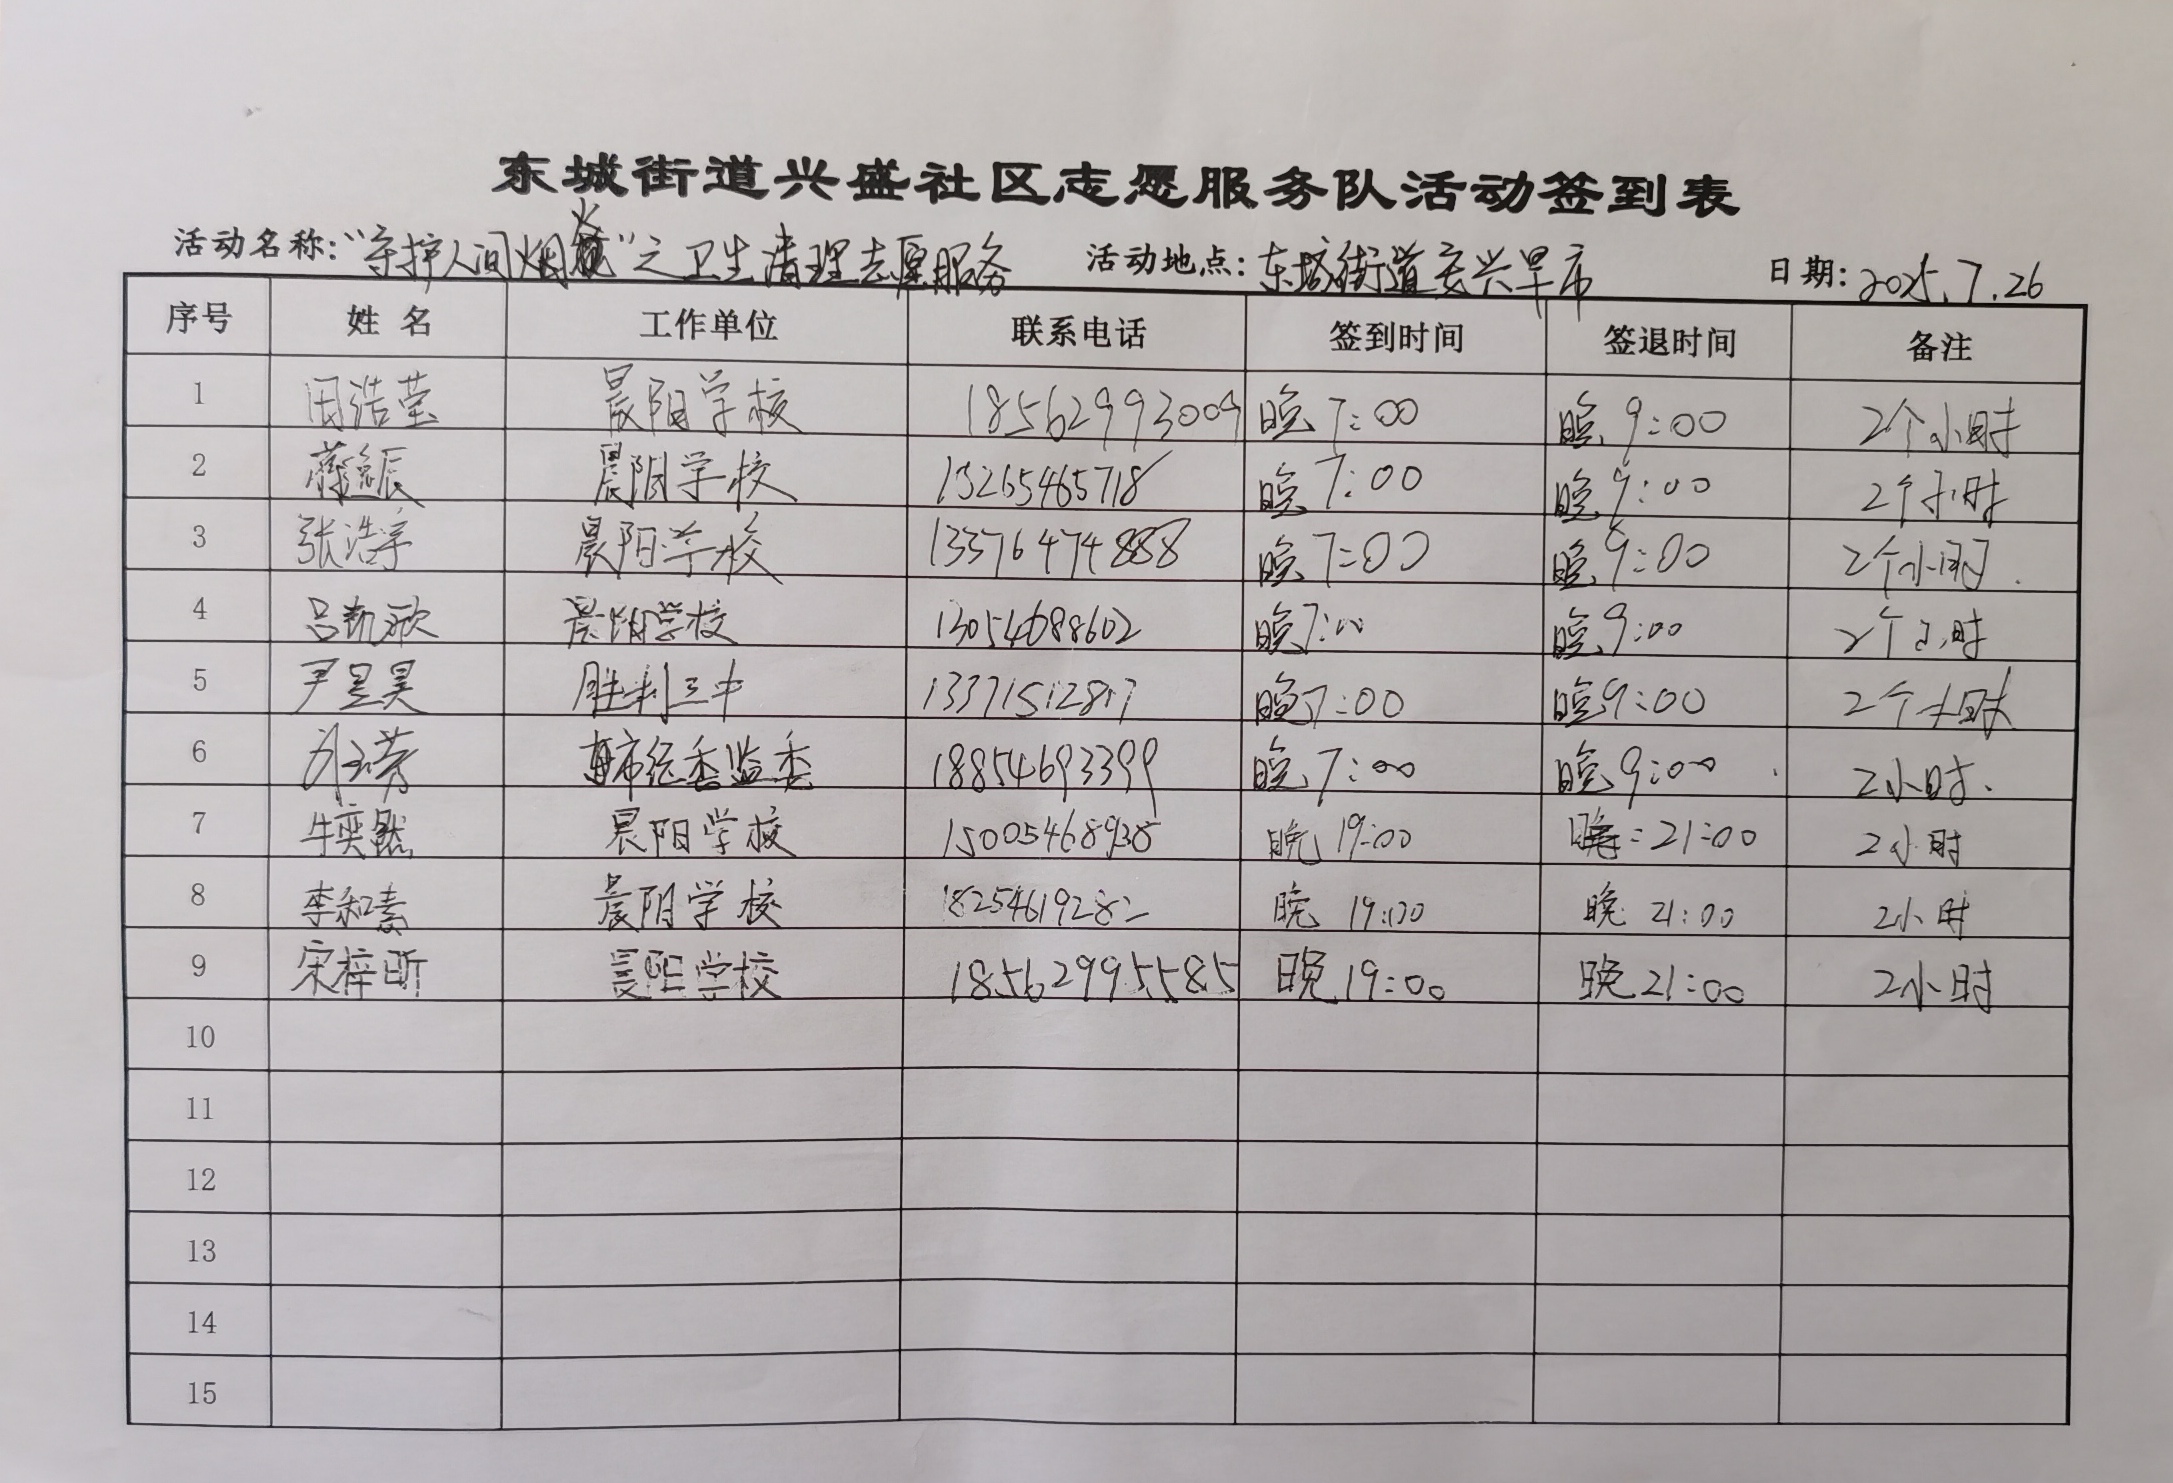 东城街道兴盛社区志愿服务队活动签到表
活动名称:“守护人间烟火”之卫生清理志愿服务 活动地点:东城街道安兴早市 日期:2025.7.26
序号 姓名 工作单位 联系电话 签到时间 签退时间 备注
1 周浩莹 晨阳学校 18562993009 晚7:00 晚9:00 2个小时
2 晨阳学校 13265465718 晚7:00 晚9:00 2个小时
3 张浩宇 晨阳学校 13376474888 晚7:00 晚9:00 2个小时
4 吕凯欣 晨阳学校 13054688602 晚7:00 晚9:00 2个小时
5 尹昱昊 胜利三中 13371512817 晚7:00 晚9:00 2个小时
6 市纪委监委 18854693399 晚7:00 晚9:00 2小时.
7 牛奕然 晨阳学校 15005468938 晚19:00 21:00 2小时
8 李和熹 晨阳学校 18254619282 晚 19:00 晚 21:00 2小时
9 宋梓昕 晨阳学校 18562995585 晚19:00 晚21:00 2小时
10
11
12
13
14
15